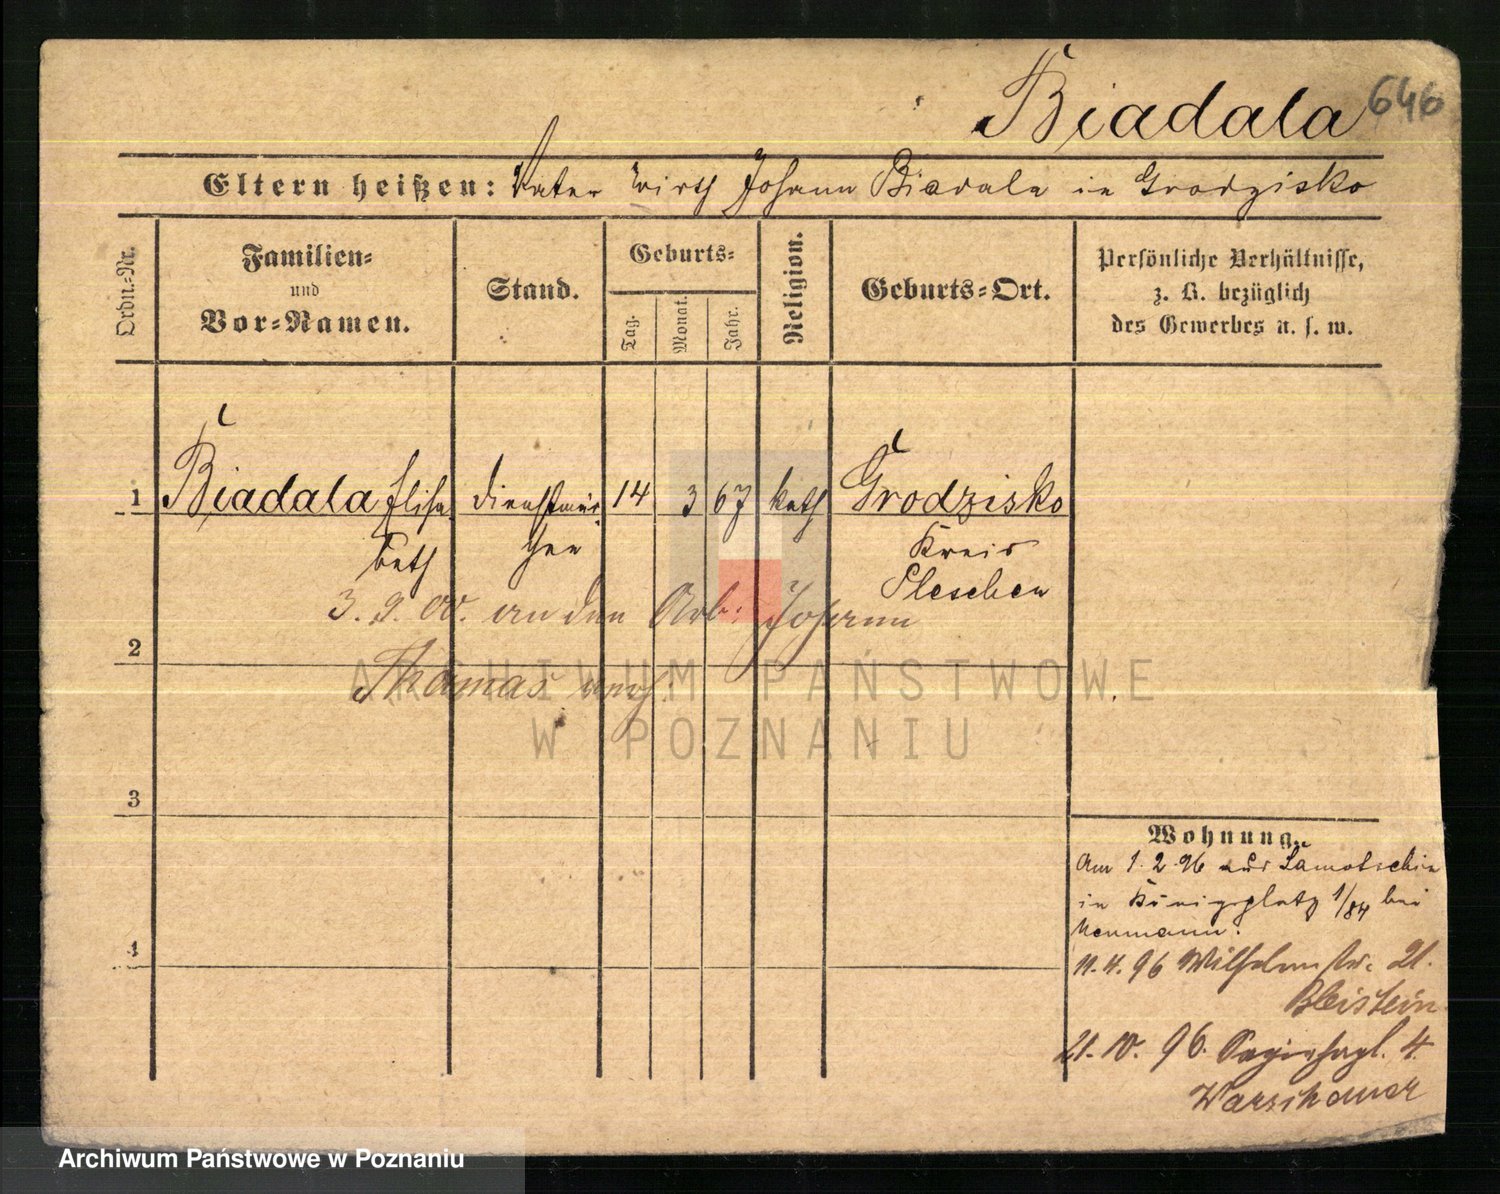 Biadala 646
Eltern heißen: Vater Wirth Johann Biadala in Grodzisko
Ordn.-Nr.
Familien-
und
Vor-Namen.
Stand.
Geburts-
Tag.
Monat.
Jahr.
Religion.
Geburts-Ort.
Persönliche Verhältnisse,
z. B. bezüglich
des Gewerbes u. s. w.
1 Biadala Elisa dienstmäd 14 3 67 kath Grodzisko
beth chen Kreis
Pleschen
3. 9. 00. an den Arb. Johann
2
Thomas verh.
3
Wohnung.
Am 1. 2. 96 aus Samotschin
in Königsplatz 1/84 bei
Neumann.
4
11. 4. 96 Wilhelmstr. 21.
Bleistein
21. 10. 96. 4.
Warschauer
ARCHIWUM PAŃSTWOWE
W POZNANIU
Archiwum Państwowe w Poznaniu